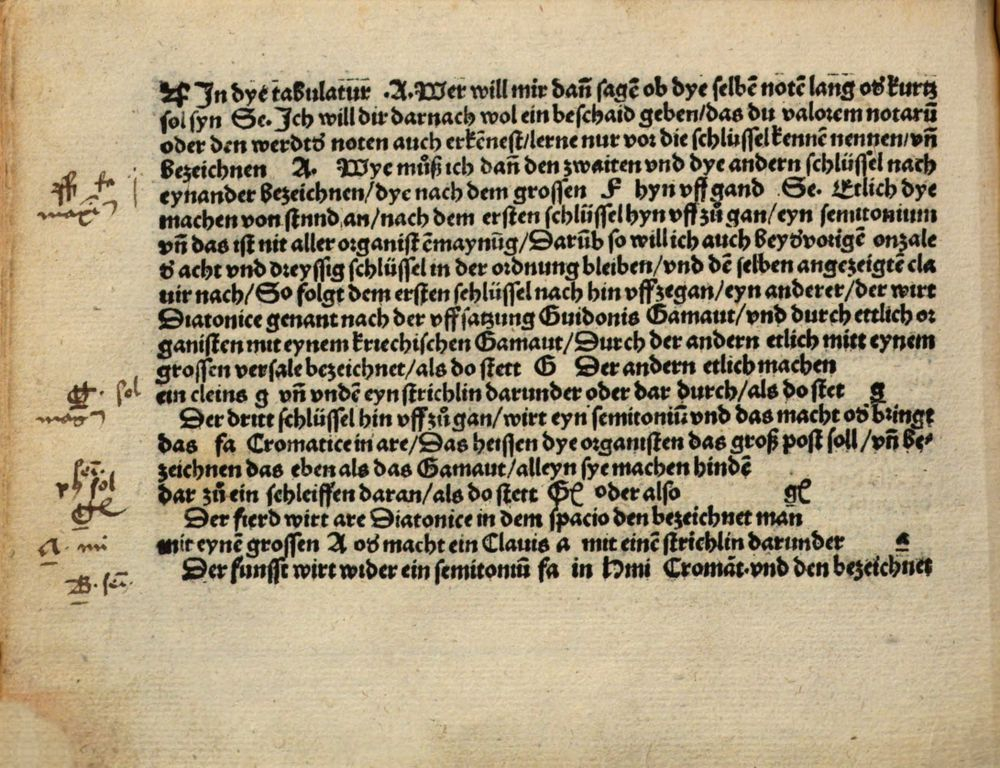 In dye tabulatur .A. Wer will mir dañ sagẽ ob dye selbẽ notẽ lang oď kurtz
sol syn Se. Ich will dir darnach wol ein beschaid geben/das du valorem notarũ
oder den werdts noten auch erkẽnest/lerne nur vor die schlüssel kennẽ nennen/vñ
bezeichnen A. Wye můß ich dañ den zwaiten vnd dye andern schlüssel nach
eynander bezeichnen/dye nach dem grossen F hyn vff gand Se. Etlich dye
machen von stnnd an/nach dem ersten schlüssel hyn vff zů gan/eyn semitonium
vñ das ist nit aller organist ẽmaynũg/Darũb so will ich auch bey ď vorigẽ onzale
ď acht vnd dreyssig schlüssel in der ordnung bleiben/vnd dẽ selben angezeigtẽ cla
uir nach/So folgt dem ersten sehlüssel nach hin vff zegan/eyn anderer/der wirt
Diatonice genant nach der vffsatzung Guidonis Gamaut/vnd durch ettlich or
ganisten mit eynem kriechischen Gamaut/Durch der andern etlich mitt eynem
grossen versale bezeichnet/als do stett G Der andern etlich machen
ein cleins g vñ vndẽ eyn strichlin darunder oder dar durch/als do stet g
sol
Der dritt schlüssel hin vff zů gan/wirt eyn semitoniũ vnd das macht oď bringt
das fa Cromatice in are/Das heissen dye organisten das groß post soll/vñ be⸗
zeichnen das eben als das Gamaut/alleyn sye machen hindẽ
dar zů ein schleiffen daran/als do stett Gſ oder also gſ
Der fierd wirt are Diatonice in dem spacio den bezeichnet man
A. mi
mit eynẽ grossen A oď macht ein Clauis a mit einẽ strichlin darunder a
Der funfft wirt wider ein semitoniũ fa in ♮mi Cromãt. vnd den bezeichnet
B. sẽ.